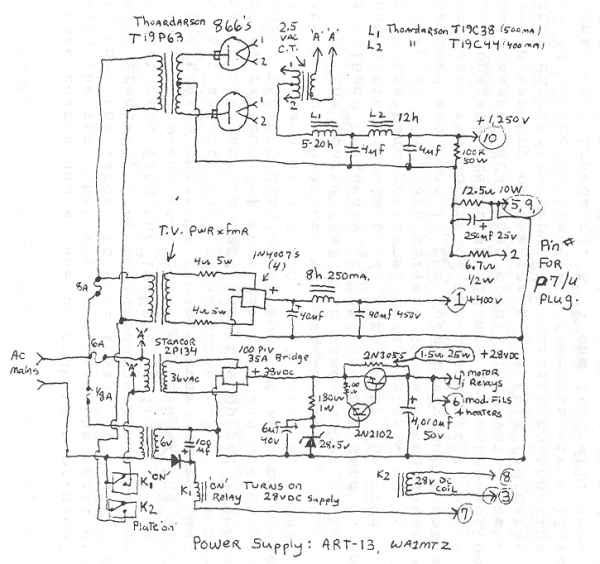 Thoardarson 866's
T19P63
2.5
VAC
C.T.
'A' 'A'
L1 Thoardarson T19C38 (500 ma)
L2 " T19C44 (400 ma)
1
2
1
2
1
2
L1
5-20h
L2 12h
4uf
4uf
+1,250V
10
100K
50W
12.5ω 10W
5,9,
250mf 25v
+
6.7ω
1/2W
2
Pin #
FOR
P7/U
Plug.
T.V. PWR xfmR
4ω 5w
1N4007's
(4)
- +
4ω 5w
8h 250ma.
40uf
40uf 450v
1 +400V
8A
6A
1/8A
AC
mains
'A'
'A'
STANCOR
2P134
36VAC
100 PIV
35A Bridge
+38VDC
2N3055
1.5ω 25W
+28VDC
4, motor
Relays
6 mod. Fils
+ heaters
180ω
1W
6uf
40V
28.5v
2N2102
4,010uf
50V
+
6V
100
mf
K1 'ON'
K2
Plate'on'
K1 'ON'
Relay
Turns on
28VDC Supply
K2
28v DC
coil
8
3
7
Power Supply: ART-13, WA1MTZ